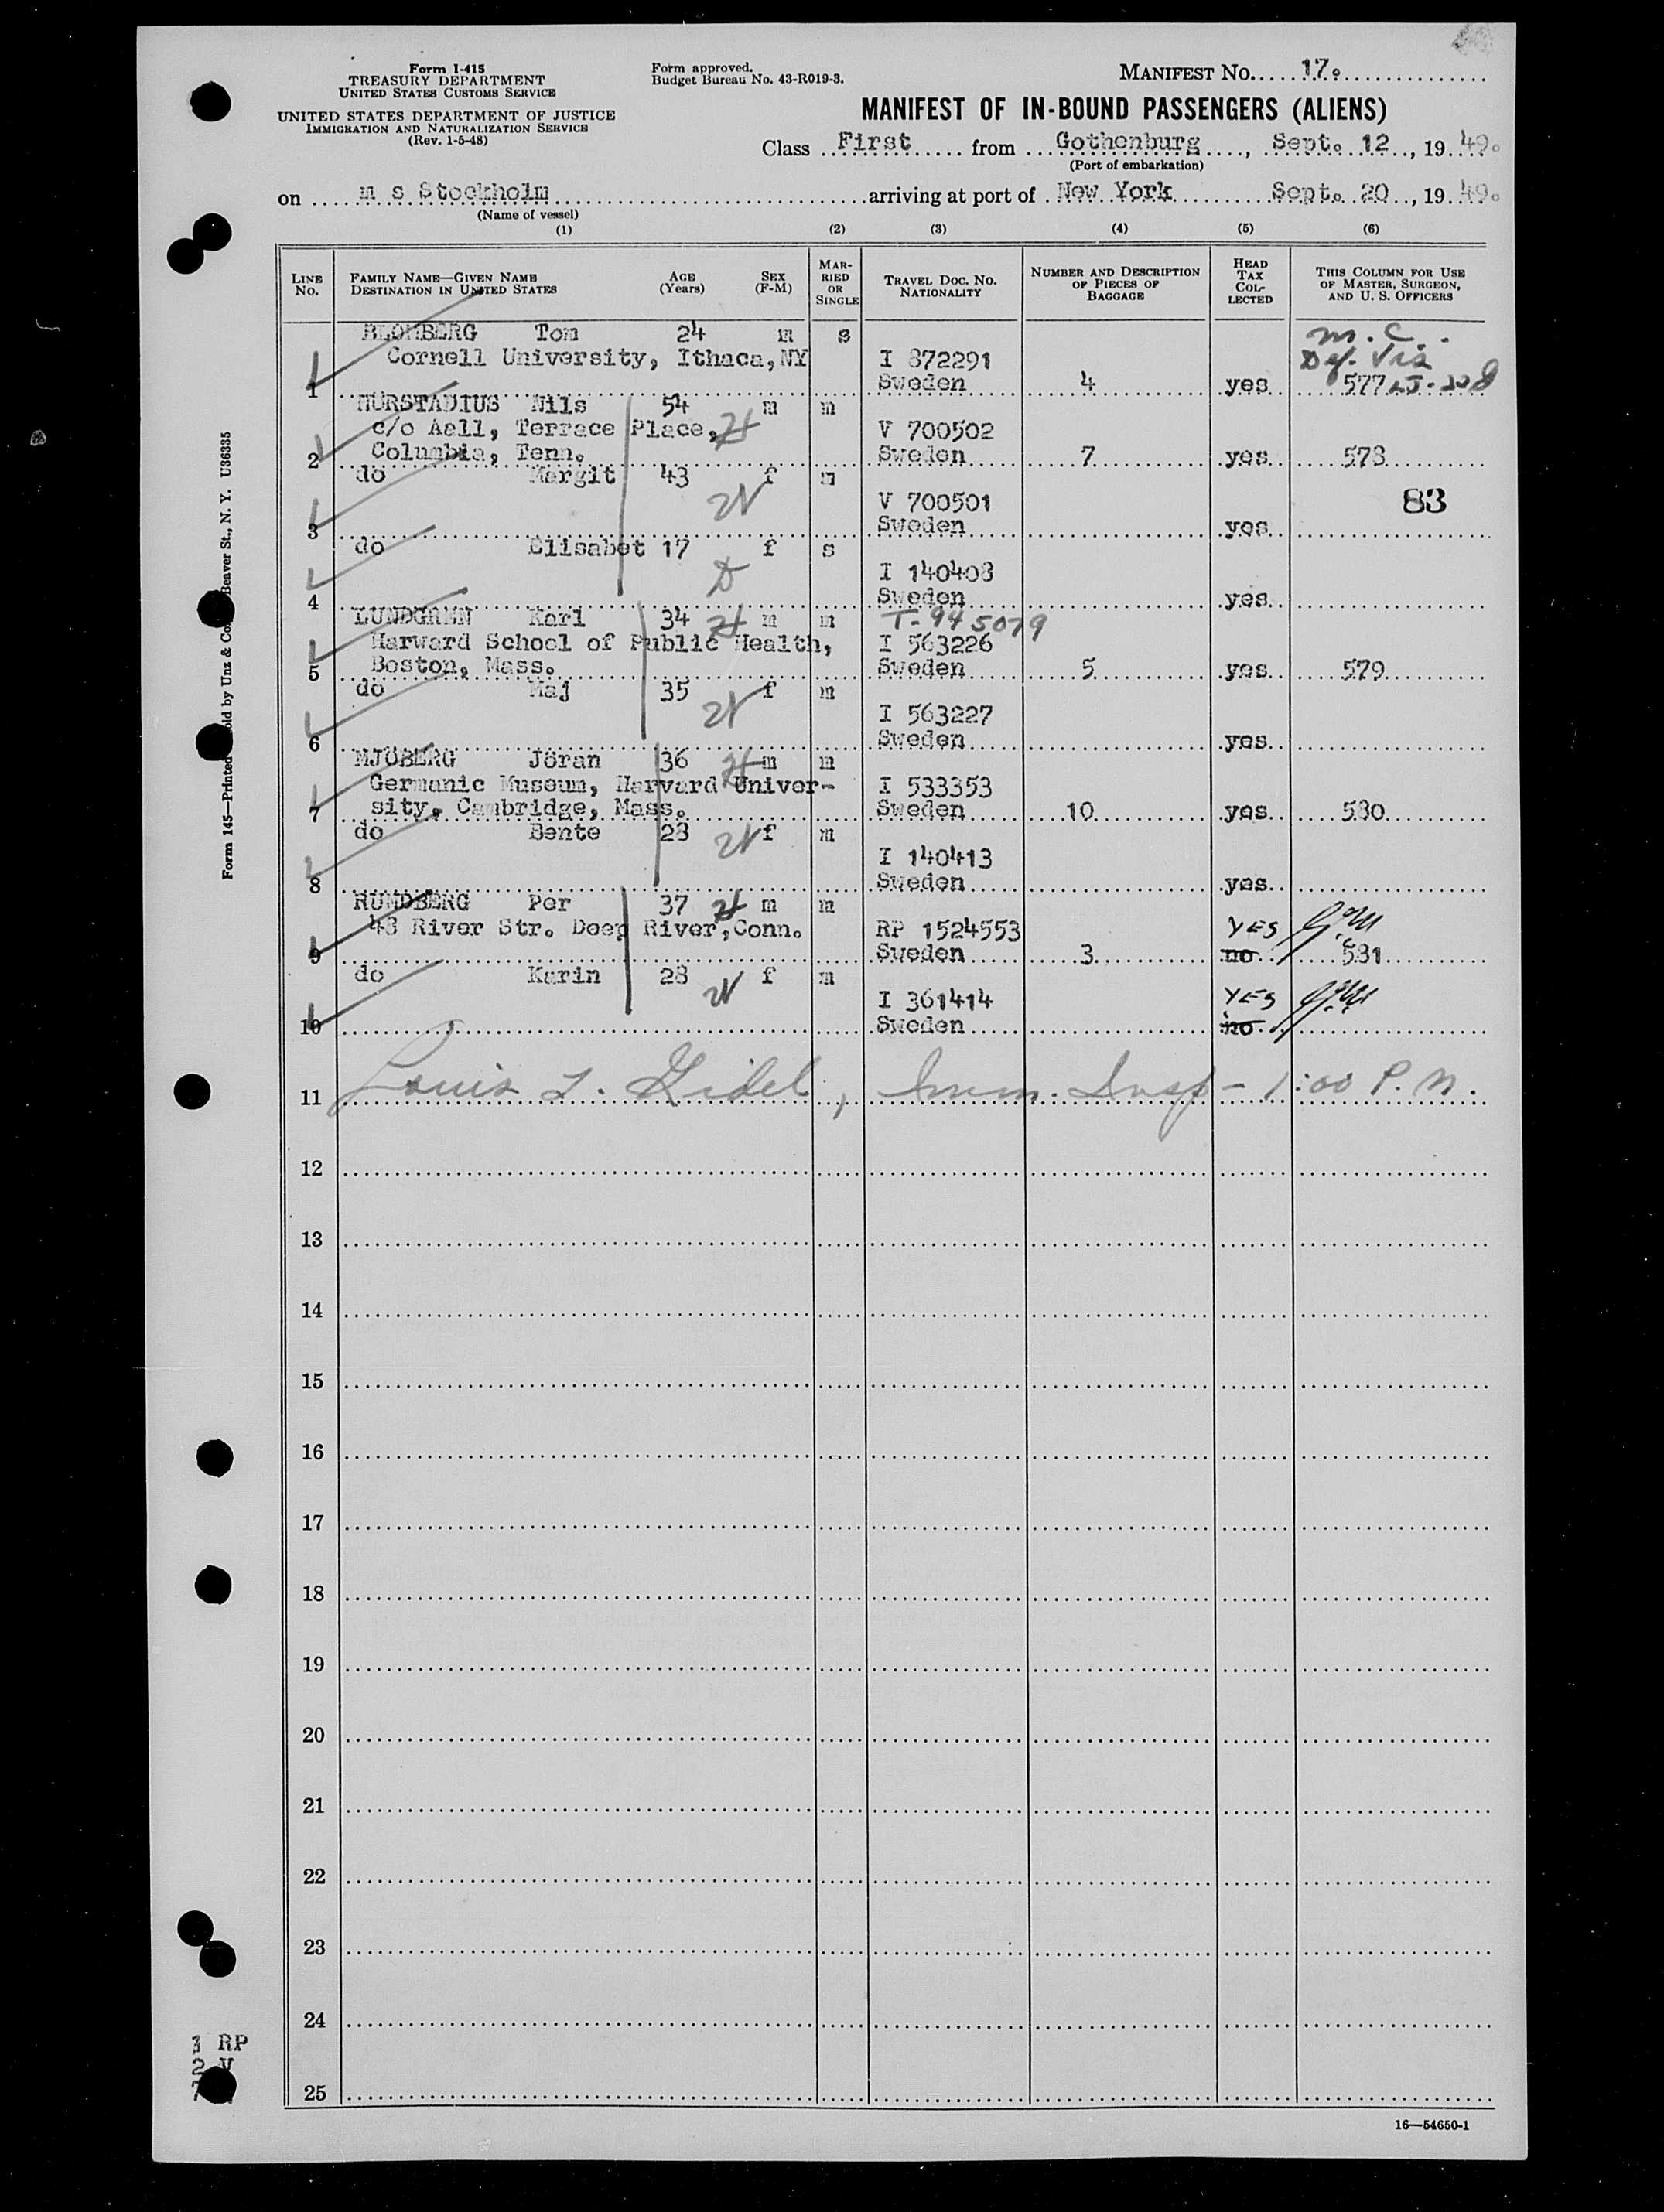 Form I-415
TREASURY DEPARTMENT
UNITED STATES CUSTOMS SERVICE
UNITED STATES DEPARTMENT OF JUSTICE
IMMIGRATION AND NATURALIZATION SERVICE
(Rev. 1-5-48)
Form approved.
Budget Bureau No. 43-R019-3.
MANIFEST NO. 17.
MANIFEST OF IN-BOUND PASSENGERS (ALIENS)
Class First from Gothenburg, Sept. 12, 19 49.
(Port of embarkation)
on m s Stockholm arriving at port of New York Sept. 20, 19 49.
(Name of vessel)
(1) (2) (3) (4) (5) (6)
LINE NO. FAMILY NAME—GIVEN NAME DESTINATION IN UNITED STATES AGE (Years) SEX (F-M) MARRIED OR SINGLE TRAVEL DOC. NO. NATIONALITY NUMBER AND DESCRIPTION OF PIECES OF BAGGAGE HEAD TAX COLLECTED THIS COLUMN FOR USE OF MASTER, SURGEON, AND U. S. OFFICERS
BLOMBERG Tom 24 m s M.C.
Cornell University, Ithaca, NY I 872291
1 Sweden 4 yes 577
HÖRSTADIUS Nils 54 m m
c/o Aell, Terrace Place, V 700502
2 Columbia, Tenn. Sweden 7 yes 578
do Margit 43 f m
V 700501 83
3 Sweden yes
do Elisabet 17 f s
I 140408
4 Sweden yes
LUNDGREN Karl 34 m m T-945079
Harward School of Public Health, I 563226
5 Boston, Mass. Sweden 5 yes 579
do Maj 35 f m
I 563227
6 Sweden yes
MJÖBERG Jöran 36 m m
Germanic Museum, Harvard Univer- I 533353
7 sity, Cambridge, Mass. Sweden 10 yes 580
do Bente 28 f m
I 140413
8 Sweden yes
RUNDBERG Per 37 m m
48 River Str. Deep River, Conn. RP 1524553 YES
9 Sweden 3 no 581
do Karin 28 f m
I 361414 YES
10 Sweden no
11 Louis L. Gidel, Imm. Insp - 1:00 P.M.
12
13
14
15
16
17
18
19
20
21
22
23
24
25
1 RP
2 V
7
16—54650-1
Form 145—Printed Sold by Unz & Co. Beaver St., N. Y. U36335